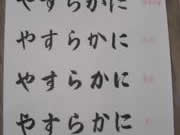 やすらかに
やすらかに
やすらかに
やすらかに